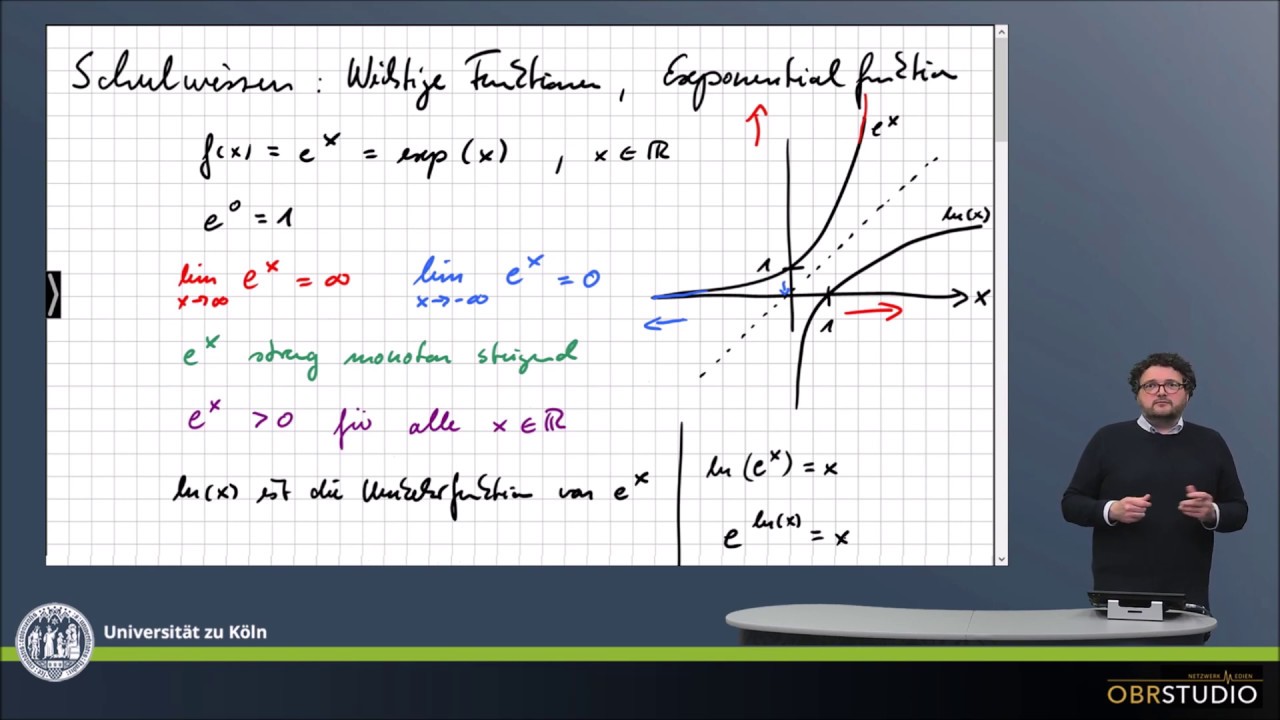 Schulwissen : Wichtige Funktionen, Exponentialfunktion
f(x) = e^x = exp(x) , x ∈ ℝ
e^0 = 1
lim x→∞ e^x = ∞ lim x→-∞ e^x = 0
e^x streng monoton steigend
e^x > 0 für alle x ∈ ℝ
ln(x) ist die Umkehrfunktion von e^x
e^x
ln(x)
1
x
1
ln(e^x) = x
e^ln(x) = x
Universität zu Köln
NETZWERK MEDIEN
OBRSTUDIO